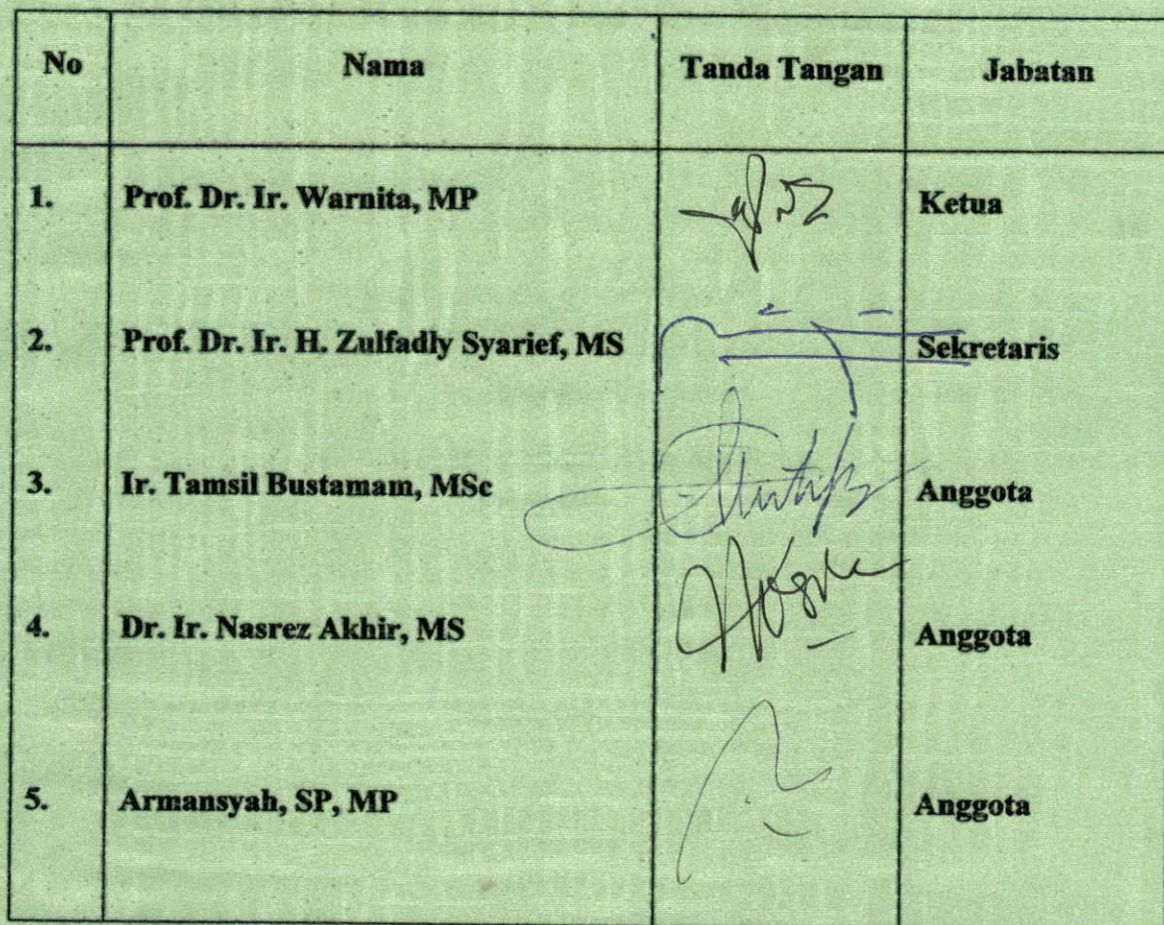 No Nama Tanda Tangan Jabatan
1. Prof. Dr. Ir. Warnita, MP Ketua
2. Prof. Dr. Ir. H. Zulfadly Syarief, MS Sekretaris
3. Ir. Tamsil Bustamam, MSc Anggota
4. Dr. Ir. Nasrez Akhir, MS Anggota
5. Armansyah, SP, MP Anggota